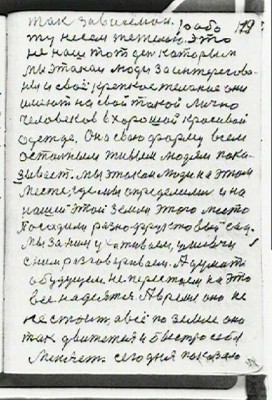 так зависели. рабо 179
ту несем тяжелою. Это
не наш тот дех которым
мы этакия люди заинтересова-
ны и своё крепкое желание они
имеют на свой такой лично
человеков в хорошой красивой
одежде. Она свою форму всем
остальним живым людям пока-
зывает. Мы этаким людям на этом
месте, где мы определили и на
нашей этой земли этого место
посадили разнофруктовый сад.
Мы за ним ухаживаем, умеючи
с ним разговариваем. А думать
о будущем не перестаем на это
все надеятся. А время оно не
не стоит, а всё по земле оно
так движется и быстро себя
меняет. сегодня показало